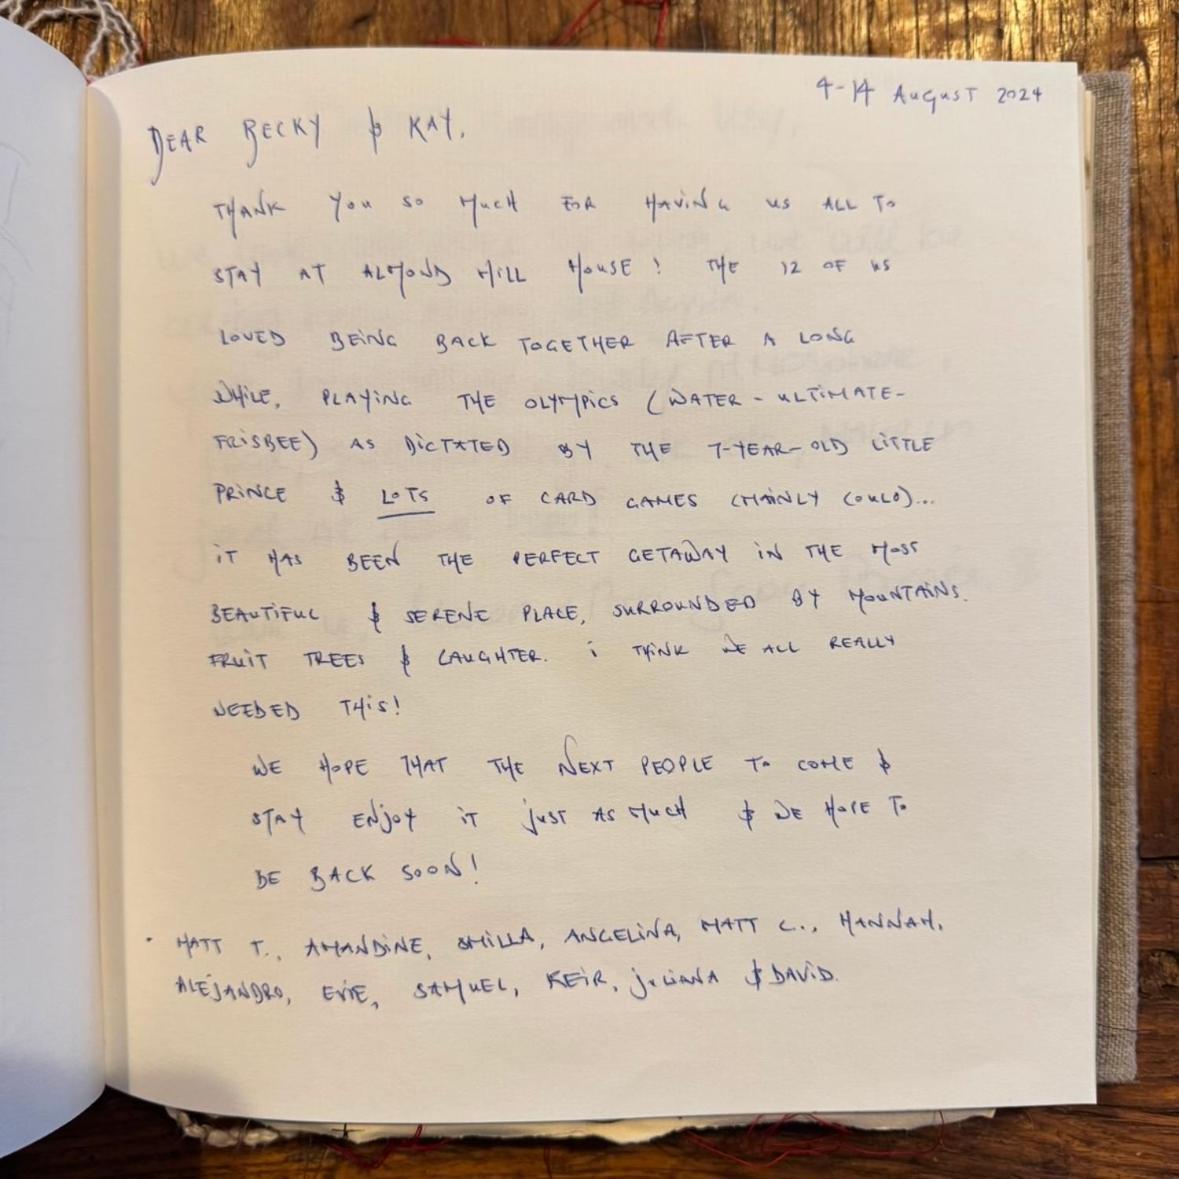 4-14 AUGUST 2024
DEAR BECKY & KAY,
THANK YOU SO MUCH FOR HAVING US ALL TO
STAY AT ALMOND HILL HOUSE! THE 12 OF US
LOVED BEING BACK TOGETHER AFTER A LONG
WHILE, PLAYING THE OLYMPICS (WATER-ULTIMATE-
FRISBEE) AS DICTATED BY THE 7-YEAR-OLD LITTLE
PRINCE & LOTS OF CARD GAMES (MAINLY
IT HAS BEEN THE PERFECT GETAWAY IN THE MOST
BEAUTIFUL & SERENE PLACE, SURROUNDED BY MOUNTAINS.
FRUIT TREES & LAUGHTER. I THINK WE ALL REALLY
NEEDED THIS!
WE HOPE THAT THE NEXT PEOPLE TO COME &
STAY ENJOY IT JUST AS MUCH & WE HOPE TO
BE BACK SOON!
MATT T., AMANDINE, SMILLA, ANGELINA, MATT C., HANNAH,
ALEJANDRO, EVIE, SAMUEL, KEIR, JULIANA & DAVID.